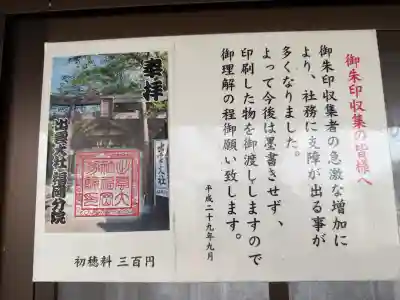 御朱印収集の皆様へ
御朱印収集者の急激な増加に
より、社務に支障が出る事が
多くなりました。
よって今後は墨書きせず、
印刷した物を御渡ししますので
御理解の程御願い致します。
平成二十九年九月
奉拝
出雲大社
初穂料 三百円